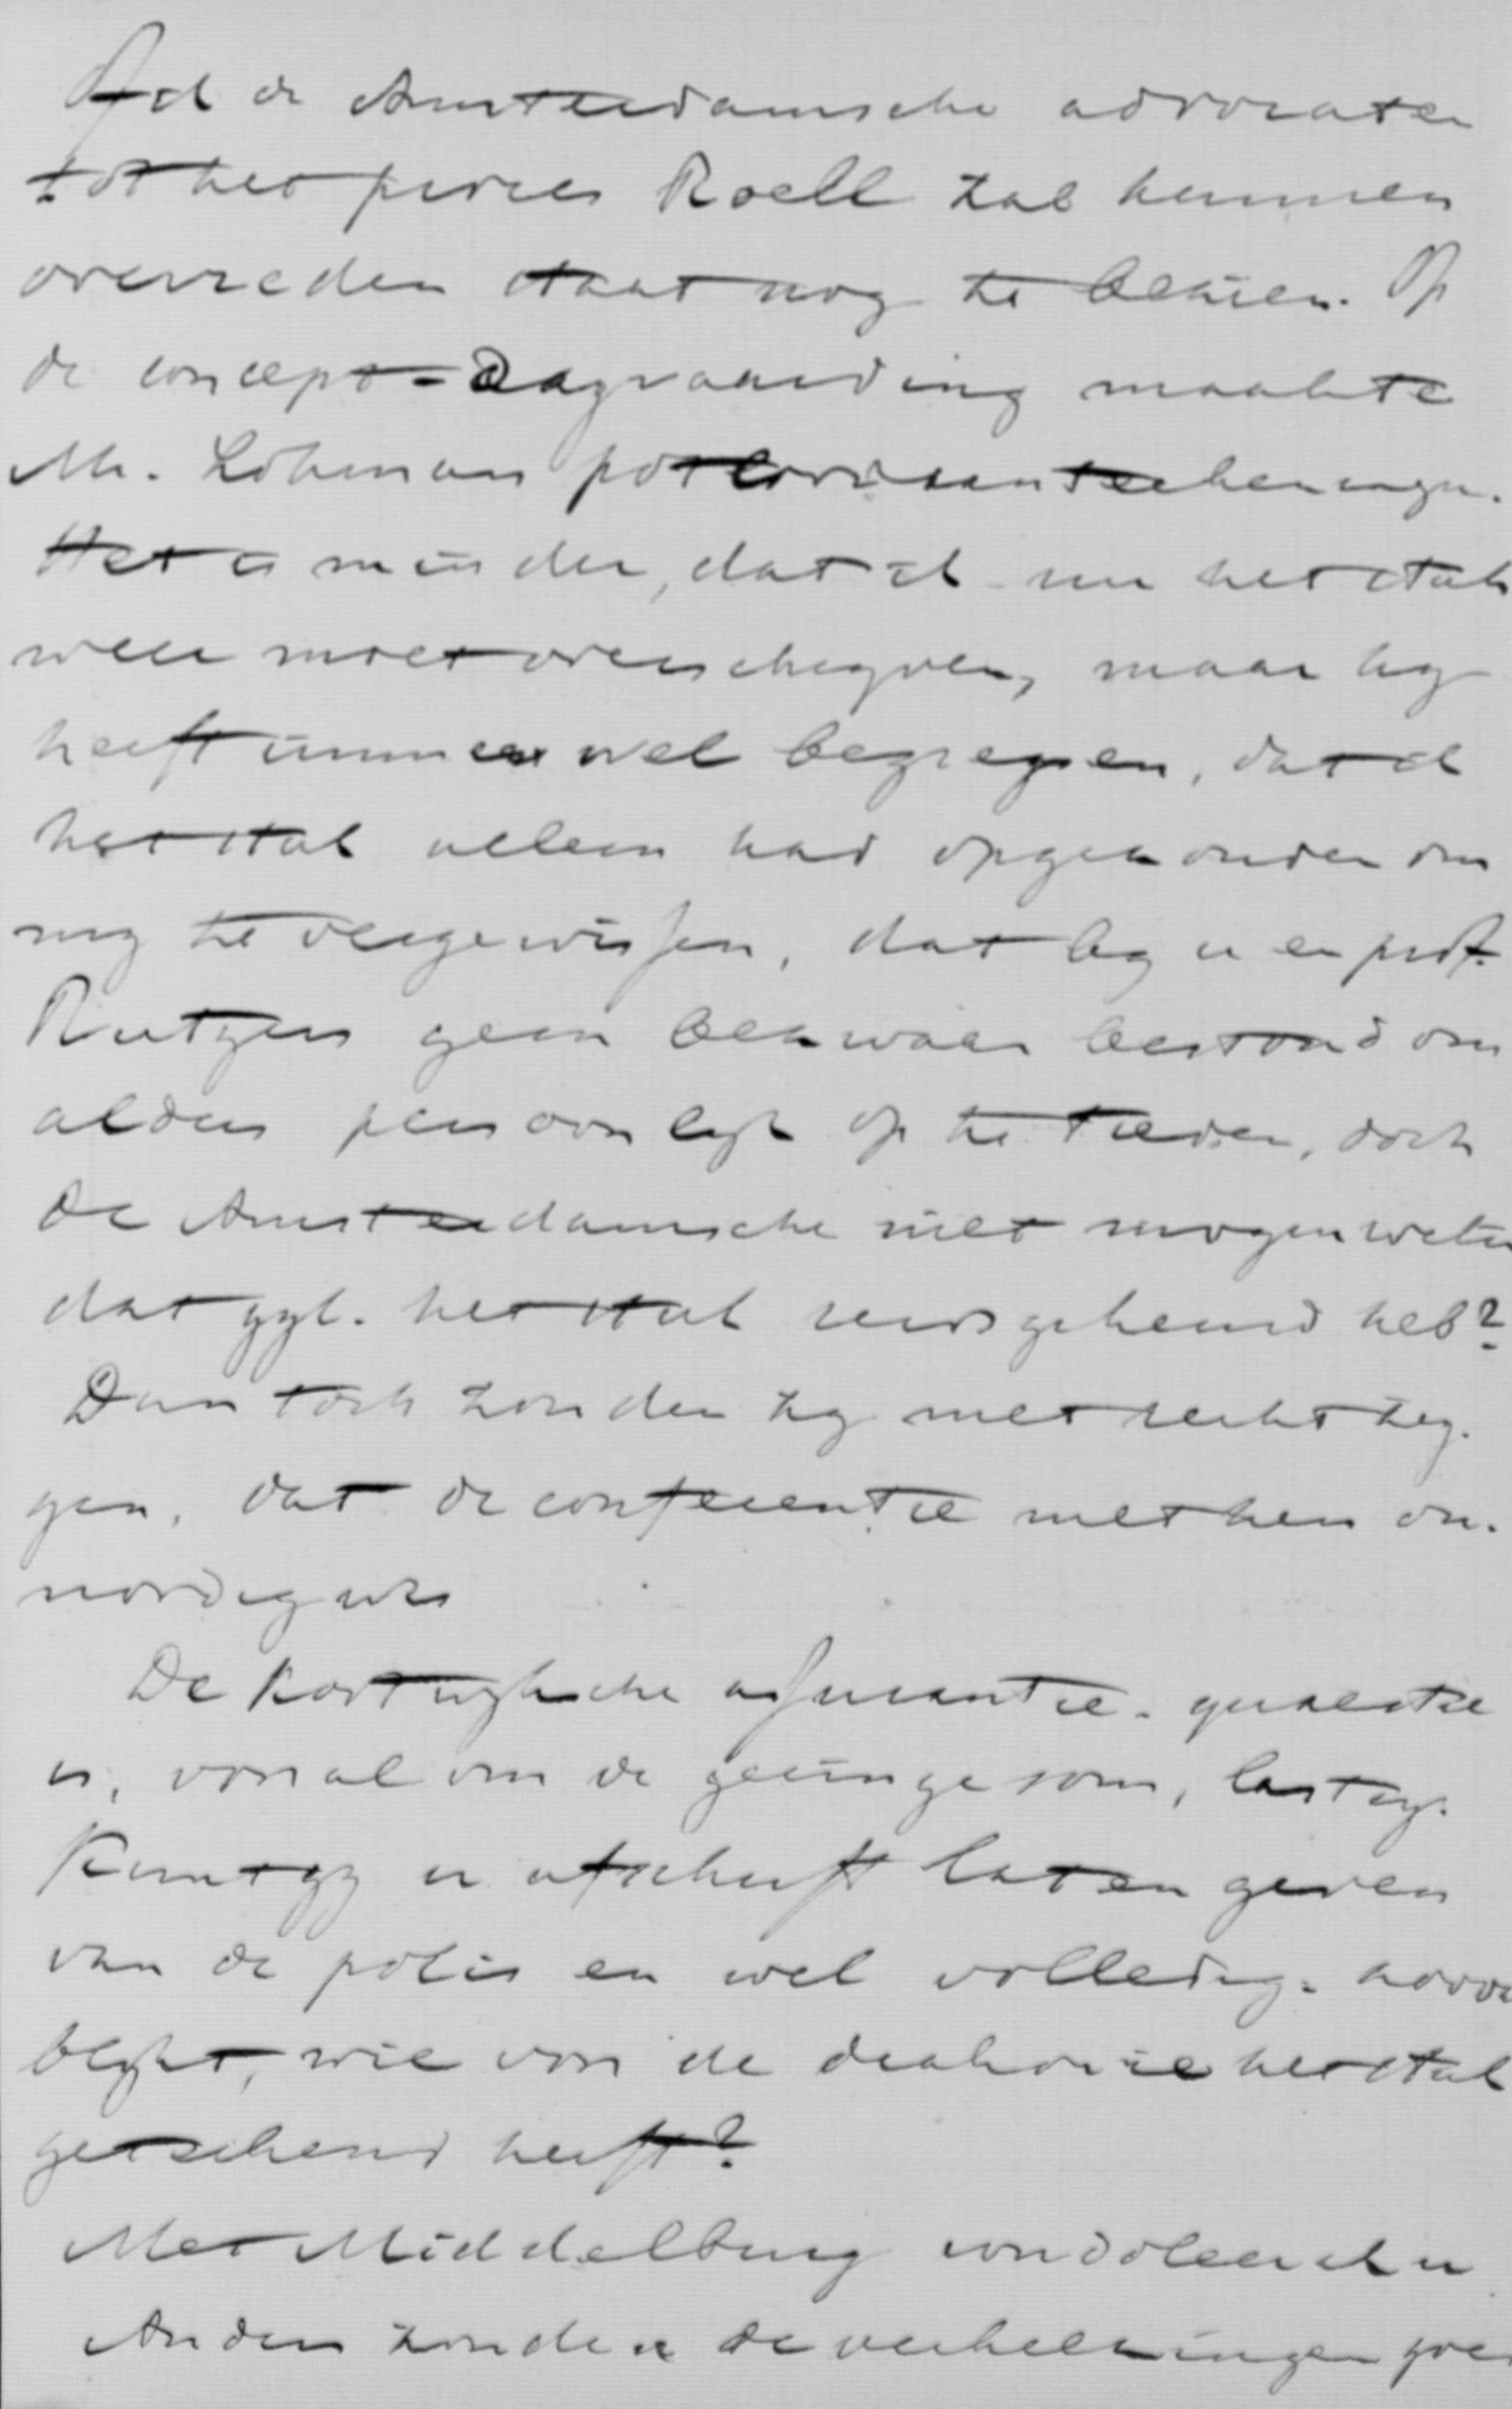 Of ik de Amsterdamsche advocaten
tot het proces Roëll zal kunnen
overreden staat nog te bezien. Op
de concept-Dagvaarding maakte
Mr. Lohman potloodaanteekeningen.
Het is minder, dat ik nu het stuk
weer moet overschrijven, maar hij
heeft immers wel begrepen, dat ik
het stuk alleen had opgezonden om
mij te vergewissen, dat bij u en prof.
Rutgers geen bezwaar bestond om
aldus persoonlijk op te treden, doch
de Amsterdamsche niet mogen weten
dat gijl. het stuk reeds gekeurd heb?
Dan toch zouden zij met recht zeg-
gen, dat de conferentie met hen on-
noodig was
De Kortwijksche assurantie-quaestie
is, vooral om de geringe som, lastig.
Kunt gij u afschrift laten geven
van de polis en wel volledig-
blijkt, wie voor de diakonie het stuk
geteekend heeft?
Met Middelburg condoleer ik u
Anders zouden de verkiezingen